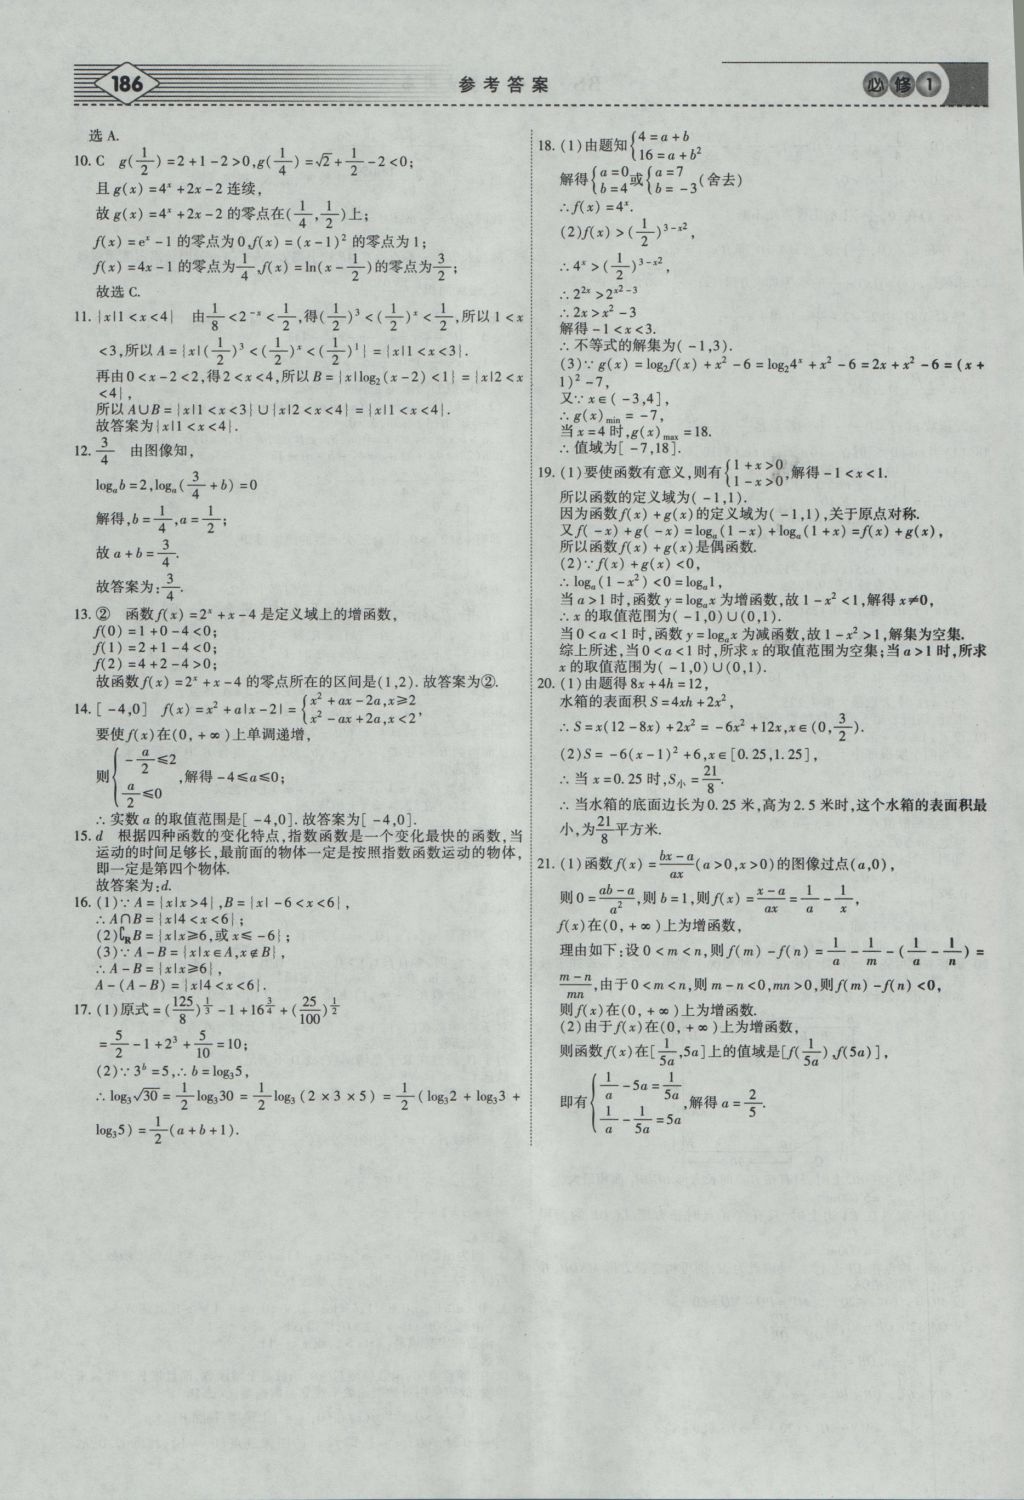 186
参考答案
必修1
选A.
10. C g(1/2)=2+1-2>0,g(1/4)=√2+1/2-2<0;
且g(x)=4^x+2x-2连续,
故g(x)=4^x+2x-2的零点在(1/4,1/2)上;
f(x)=e^x-1的零点为0,f(x)=(x-1)²的零点为1;
f(x)=4x-1的零点为1/4,f(x)=ln(x-1/2)的零点为3/2;
故选C.
11. {x|1<x<4} 由1/8<2^{-x}<1/2,得(1/2)³<(1/2)^x<1/2,所以1<x
<3,所以A={x|(1/2)³<(1/2)^x<(1/2)^1}={x|1<x<3}.
再由0<x-2<2,得2<x<4,所以B={x|log₂(x-2)<1}={x|2<x
<4},
所以A∪B={x|1<x<3}∪{x|2<x<4}={x|1<x<4}.
故答案为{x|1<x<4}.
12. 3/4 由图像知,
log_a b=2,log_a(3/4+b)=0
解得,b=1/4,a=1/2;
故a+b=3/4.
故答案为:3/4.
13. ② 函数f(x)=2^x+x-4是定义域上的增函数,
f(0)=1+0-4<0;
f(1)=2+1-4<0;
f(2)=4+2-4>0;
故函数f(x)=2^x+x-4的零点所在的区间是(1,2).故答案为②.
14. [-4,0] f(x)=x²+a|x-2|={x²+ax-2a,x≥2
x²-ax+2a,x<2,
要使f(x)在(0,+∞)上单调递增,
则{-a/2≤2
a/2≤0,解得-4≤a≤0;
∴实数a的取值范围是[-4,0].故答案为[-4,0].
15. d 根据四种函数的变化特点,指数函数是一个变化最快的函数,当
运动的时间足够长,最前面的物体一定是按照指数函数运动的物体,
即一定是第四个物体.
故答案为:d.
16. (1)∵A={x|x>4},B={x|-6<x<6},
∴A∩B={x|4<x<6};
(2)∁_R B={x|x≥6,或x≤-6};
(3)∵A-B={x|x∈A,x∉B},
∴A-B={x|x≥6},
A-(A-B)={x|4<x<6}.
17. (1)原式=(125/8)^{1/3}-1+16^{3/4}+(25/100)^{1/2}
=5/2-1+2³+5/10=10;
(2)∵3^b=5,∴b=log₃5,
∴log₃√30=1/2log₃30=1/2log₃(2×3×5)=1/2(log₃2+log₃3+
log₃5)=1/2(a+b+1).
18. (1)由题知{4=a+b
16=a+b²
解得{a=0
b=4或{a=7
b=-3(舍去)
∴f(x)=4^x.
(2)f(x)>(1/2)^{3-x²},
∴4^x>(1/2)^{3-x²},
∴2^{2x}>2^{x²-3}
∴2x>x²-3
解得-1<x<3.
∴不等式的解集为(-1,3).
(3)∵g(x)=log₂f(x)+x²-6=log₂4^x+x²-6=2x+x²-6=(x+
1)²-7,
又∵x∈(-3,4],
∴g(x)min=-7,
当x=4时,g(x)max=18.
∴值域为[-7,18].
19. (1)要使函数有意义,则有{1+x>0
1-x>0,解得-1<x<1.
所以函数的定义域为(-1,1).
因为函数f(x)+g(x)的定义域为(-1,1),关于原点对称.
又f(-x)+g(-x)=log_a(1-x)+log_a(1+x)=f(x)+g(x),
所以函数f(x)+g(x)是偶函数.
(2)∵f(x)+g(x)<0,
∴log_a(1-x²)<0=log_a1,
当a>1时,函数y=log_a x为增函数,故1-x²<1,解得x≠0,
∴x的取值范围为(-1,0)∪(0,1).
当0<a<1时,函数y=log_a x为减函数,故1-x²>1,解集为空集.
综上所述,当0<a<1时,所求x的取值范围为空集;当a>1时,所求
x的取值范围为(-1,0)∪(0,1).
20. (1)由题得8x+4h=12,
水箱的表面积S=4xh+2x²,
∴S=x(12-8x)+2x²=-6x²+12x,x∈(0,3/2).
(2)S=-6(x-1)²+6,x∈[0.25,1.25],
∴当x=0.25时,S小=21/8.
∴当水箱的底面边长为0.25米,高为2.5米时,这个水箱的表面积最
小,为21/8平方米.
21. (1)函数f(x)=(bx-a)/ax(a>0,x>0)的图像过点(a,0),
则0=(ab-a)/a²,则b=1,则f(x)=(x-a)/ax=1/a-1/x,
f(x)在(0,+∞)上为增函数,
理由如下:设0<m<n,则f(m)-f(n)=1/a-1/m-(1/a-1/n)=
(m-n)/mn,由于0<m<n,则m-n<0,mn>0,则f(m)-f(n)<0,
则f(x)在(0,+∞)上为增函数.
(2)由于f(x)在(0,+∞)上为增函数,
则函数f(x)在[1/5a,5a]上的值域是[f(1/5a),f(5a)],
即有{1/a-5a=1/5a
1/a-1/5a=5a,解得a=2/5.